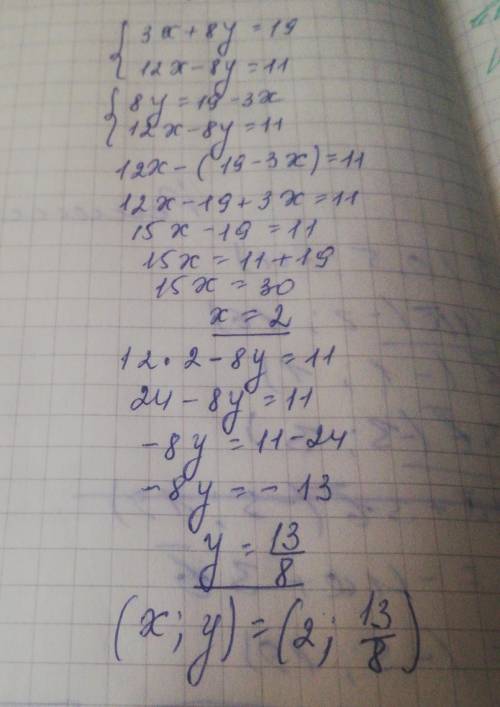 { 3x + 8y = 19
12x - 8y = 11
{ 8y = 19 - 3x
12x - 8y = 11
12x - (19 - 3x) = 11
12x - 19 + 3x = 11
15x - 19 = 11
15x = 11 + 19
15x = 30
x = 2
12 · 2 - 8y = 11
24 - 8y = 11
-8y = 11 - 24
-8y = - 13
y = 13/8
(x; y) = (2; 13/8)